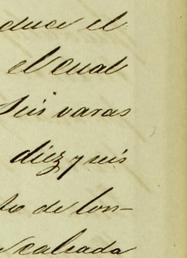 duce el
el cual
Seis varas
diez y seis
to de lon-
calzada